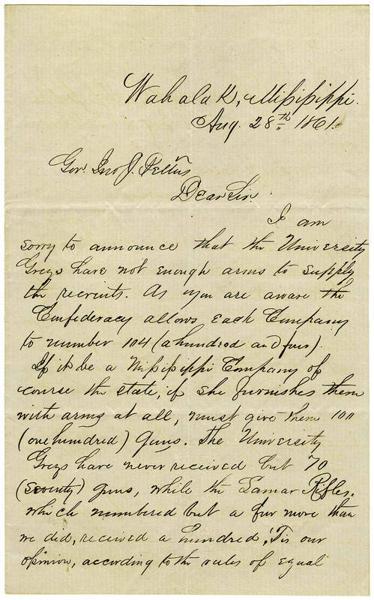 Wahalak, Mississippi.
Aug. 28th 1861.
Gov. Jno J. Pettus
Dear Sir
I am
sorry to announce that the University
Greys have not enough arms to supply
the recruits. As you are aware the
Confederacy allows each Company
to number 104 (a hundred and four).
If it be a Mississippi Company of
course the state, if she furnishes them
with arms at all, must give them 100
(one hundred) guns. The University
Greys have never received but 70
(seventy) guns, while the Lamar Rifles,
which numbered but a few more than
we did, received a hundred. 'Tis our
opinion, according to the rules of equal